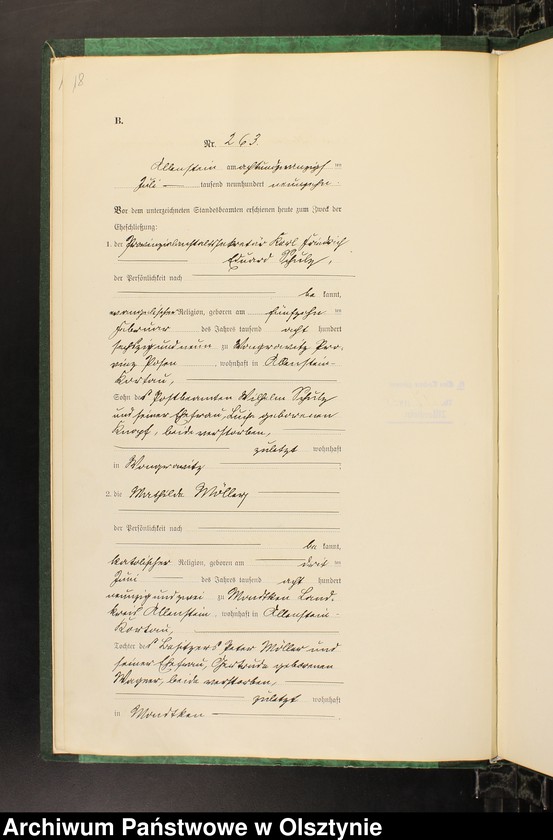 18
B.
Nr. 263.
Allenstein am achtundzwanzigsten
Juli tausend neunhundert neunzehn
Vor dem unterzeichneten Standesbeamten erschienen heute zum Zweck der
Eheschließung:
1. der Provinzialanstaltssekretär Karl Friedrich
Eduard Schulz,
der Persönlichkeit nach
be kannt,
evangelischer Religion, geboren am fünfzehnten
Februar des Jahres tausend acht hundert
sechzigundneun zu Wongrowitz Pro-
vinz Posen, wohnhaft in Allenstein-
Kortau,
Sohn des Postbeamten Wilhelm Schulz
und seiner Ehefrau, geborenen
Knopf, beide verstorben,
zuletzt wohnhaft
in Wongrowitz
2. die Mathilde Möller
der Persönlichkeit nach
be kannt,
katolischer Religion, geboren am dritten
Juni des Jahres tausend acht hundert
neunzigundzwei zu Mondtken Land-
kreis Allenstein, wohnhaft in Allenstein-
Kortau,
Tochter des Besitzers Peter Möller und
seiner Ehefrau, Gertrude geborenen
Wagner, beide verstorben,
zuletzt wohnhaft
in Mondtken
Archiwum Państwowe w Olsztynie